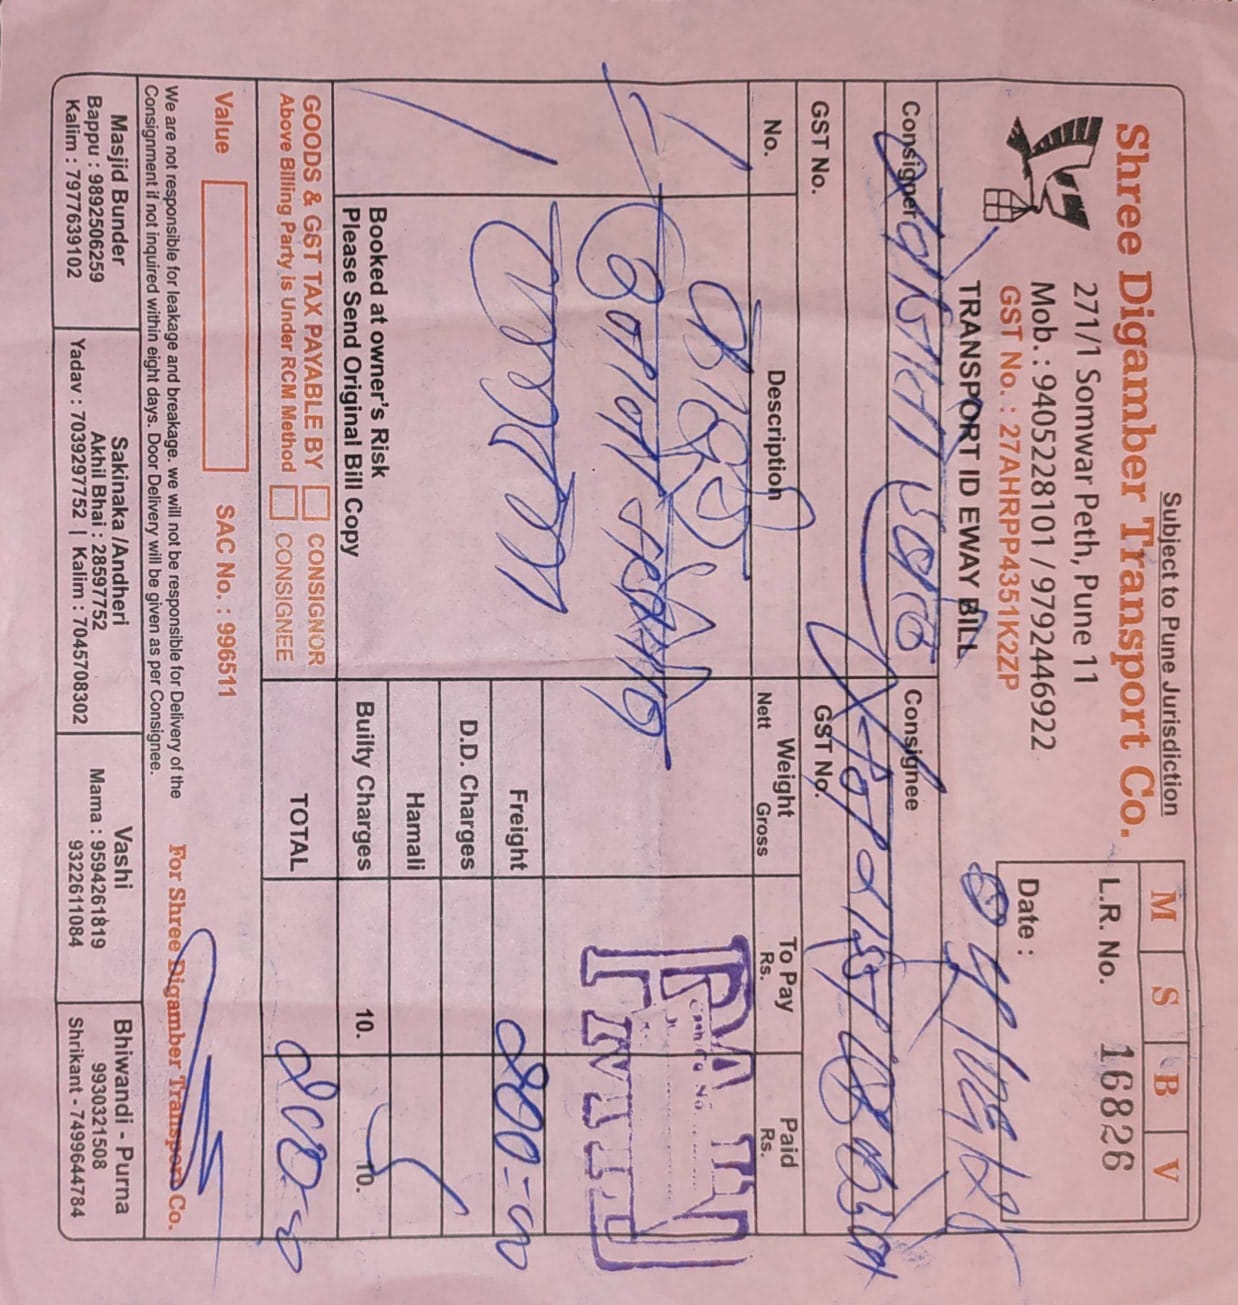 Subject to Pune Jurisdiction
Shree Digamber Transport Co.
271/1 Somwar Peth, Pune 11
Mob. : 9405228101 / 9792446922
GST No. : 27AHRPP4351K2ZP
TRANSPORT ID EWAY BILL
M S B V
L.R. No. 16826
Date :
Consigner
Consignee
GST No.
GST No.
No. Description Weight To Pay Paid
Nett Gross Rs. Rs.
PAID
Freight 200-00
D.D. Charges
Hamali
Builty Charges 10. 10.
TOTAL 200-00
Booked at owner's Risk
Please Send Original Bill Copy
GOODS & GST TAX PAYABLE BY CONSIGNOR
Above Billing Party is Under RCM Method CONSIGNEE
Value SAC No. : 996511
We are not responsible for leakage and breakage. we will not be responsible for Delivery of the
Consignment if not inquired within eight days. Door Delivery will be given as per Consignee.
For Shree Digamber Transport Co.
Masjid Bunder
Bappu : 9892506259
Kalim : 7977639102
Sakinaka /Andheri
Akhil Bhai : 28597752
Yadav : 7039297752 | Kalim : 7045708302
Vashi
Mama : 9594261819
9322611084
Bhiwandi - Purna
9930321508
Shrikant - 7499644784